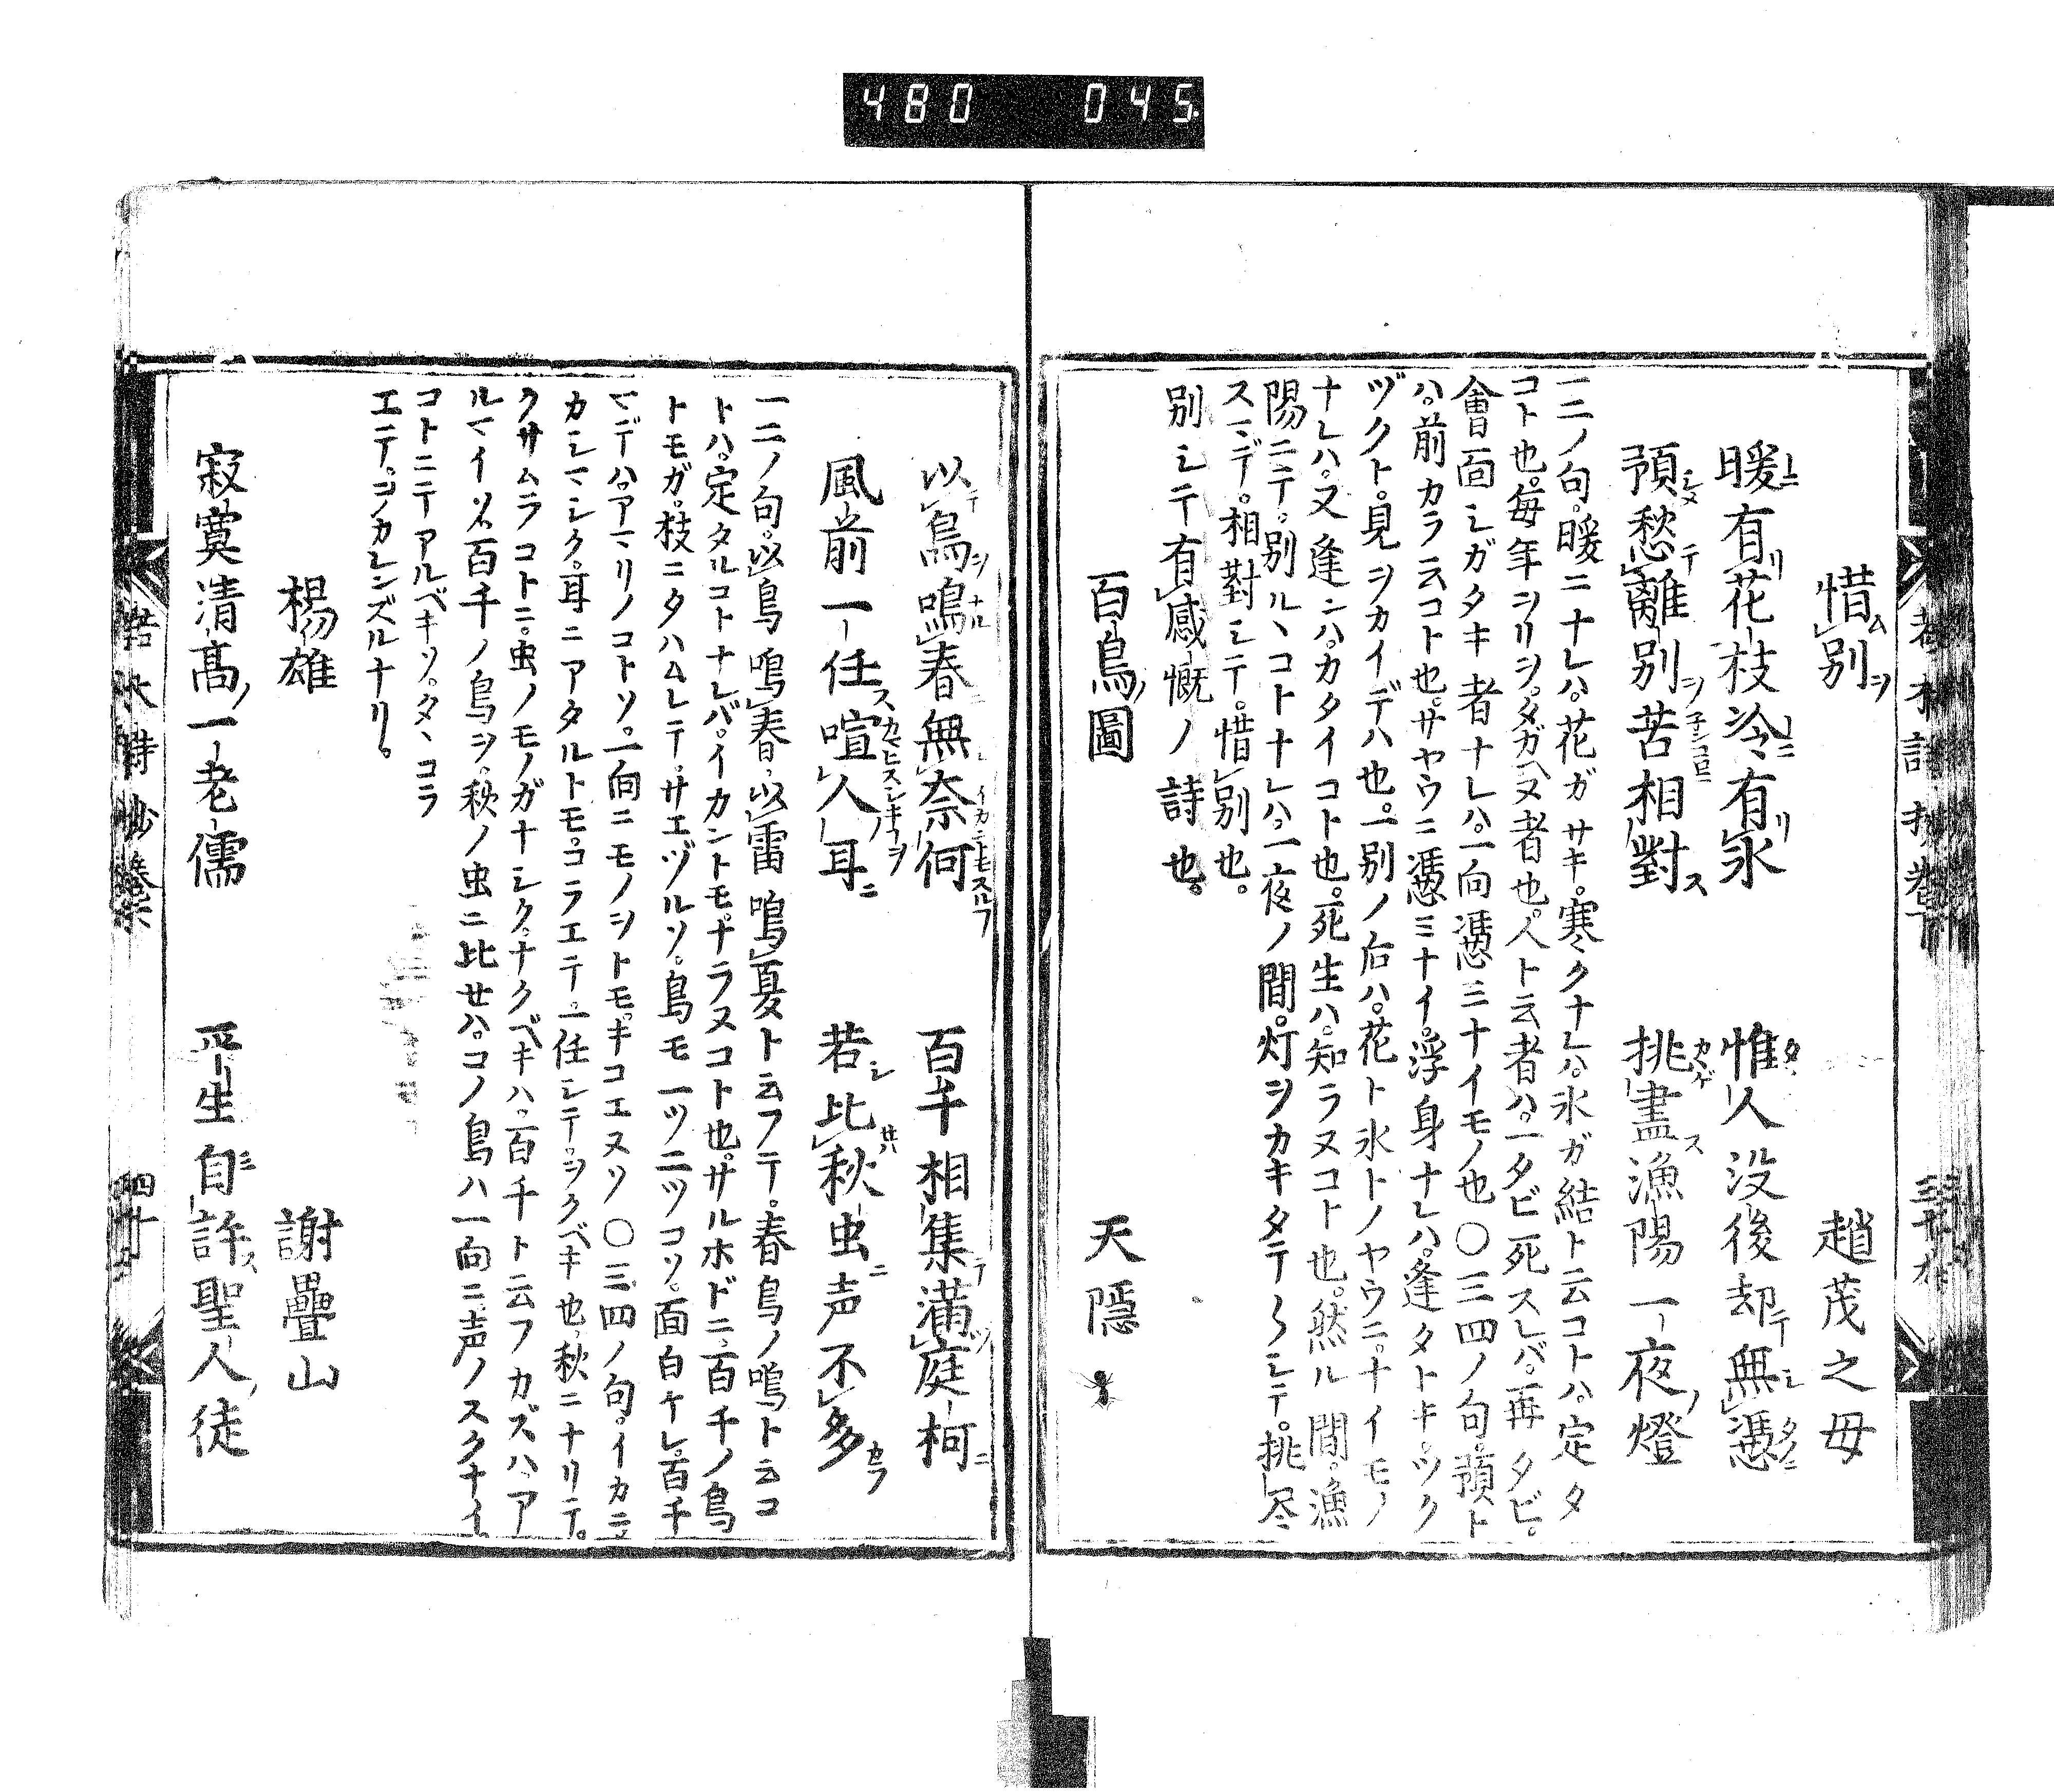 480 045
惜別 趙茂之母
暖有花枝冷有氷 惟人没後却無憑
預愁離別苦相對 挑盡漁陽一夜燈
一二ノ句。暖ニナレハ。花ガサキ。寒クナレハ。氷ガ結ト云コトハ。定タ
コト也。毎年シリシ。タガハヌ者也。人ト云者ハ。一タビ死スレバ。再タビ。
會面シガタキ者ナレハ。一向憑ミナイモノ也〇三四ノ句。預ト
ハ。前カラ云コト也。サヤウニ憑ミナイ。浮身ナレハ。逢タトキ。ツク
ヅクト。見ヲカイデハ也。一別ノ后ハ。花ト氷トノヤウニ。ナイモノ
ナレハ。又逢ンハ。カタイコト也。死生ハ。知ラヌコト也。然ル間。漁
陽ニテ。別ルヽコトナレハ。一夜ノ間。灯ヲカキタテ〱シテ。挑尽
スマデ。相對シテ。惜別也。
別シテ有感慨ノ詩也。
百鳥圖 天隠
以鳥鳴春無奈何 百千相集満庭柯
風前一任喧人耳 若比秋虫声不多
一二ノ句。以鳥鳴春、以雷鳴夏ト云フテ。春鳥ノ鳴ト云コ
トハ。定タルコトナレバ。イカントモ。ナラヌコト也。サルホドニ、百千ノ鳥
トモガ。枝ニタハムレテ。サエヅルソ。鳥モ一ツ二ツコソ。面白ケレ。百千
マデハ。アマリノコトソ。一向ニモノヲトモ。キコエヌソ〇三四ノ句。イカニ
カシマシク。耳ニアタルトモ。コラエテ一任シテ。ヲクベキ也、秋ニナリテ。
クサムラコトニ。虫ノモノガナシク。ナクベキハ。百千ト云フカズハ、ア
ルマイソ。百千ノ鳥ヲ。秋ノ虫ニ比セハ。コノ鳥ハ一向ニ声ノスクナイ
コトニテアルベキソ。タヽコラ
エテ。ヲカレンズルナリ。
楊雄 謝疊山
寂寞清髙一老儒 平生自許聖人徒